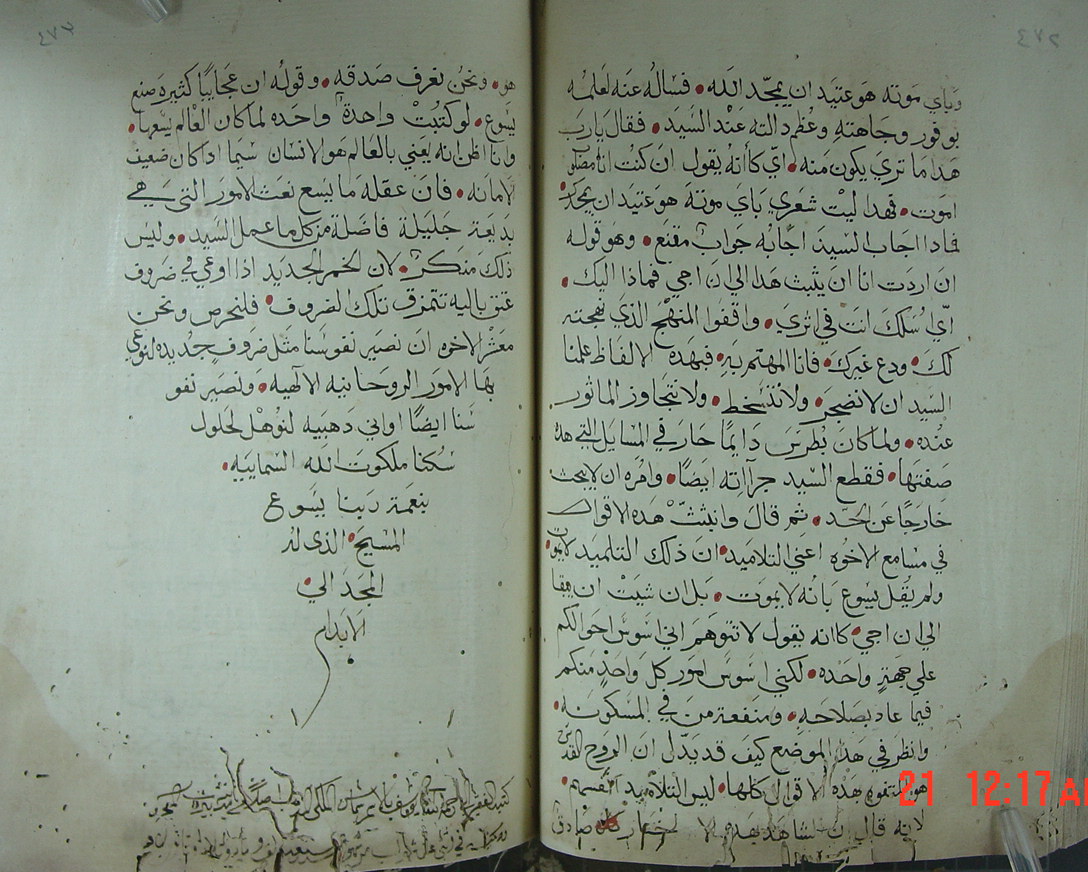 ٢٧٣
وباي موته هو عتيد ان يمجد الله. فسأله عنه لعلمه
بوفور وجاهته وعظم دالته عند السيد. فقال يا رب
هدا ما تري يكون منه. اي كأنه يقول ان كنت انا
اموت. فهدا ليت شعري باي موته هو عتيد ان يمجدك
فاداا اجاب السيد اجابه جواب مقنع. وهو قوله
ان اردت انا ان يثبت هدا الي ان اجي فماذا اليك.
اي اسلك انت في اثري. واقفوا المنهج الذي نهجته
لك. ودع غيرك. فانا المهتم به. فبهده الالفاظ علمنا
السيد ان لا نضجر. ولا نتسخط. ولا نتجاوز الماثور
عنده. ولما كان بطرس دايما حار في المسايل التي هده
صفتها. فقطع السيد جرااته ايضا. وامره ان لا يبحث
خارجا عن الحد. ثم قال وانبثت هده الاقوال
في مسامع الاخوه اعني التلاميد. ان ذلك التلميد لا يموت
ولم يقل يسوع بانه لا يموت. بل ان شيت ان يبقا
الي ان اجي. كانه يقول لا تتوهم اني اسوس احوالكم
علي جهة واحده. لكني اسوس امور كل واحد منكم
فيما عاد بصلاحه. ومنفعة من في المسكونه.
وانظر في هدا الموضع كيف قد يدل ان الروح القدس
هو المتفوه هده الاقوال كلها. ليس التلاميد انفسهم.
لانه قال ان الشاهد بهده الاخبار كلها صادق
هو. ونحن نعرف صدقه. وقوله ان عجايبا كثيره صنع
يسوع. لو كتبت واحدة واحده لما كان العالم يسعها.
وانا اظن انه يعني بالعالم هو الانسان سيما ادا كان ضعيف
الامانه. فان عقله ما يسع نعث الامور التي هي
بديعة جليلة فاضلة من كل ما عمل السيد. وليس
ذلك منكر. لان الخمر الجديد ادا اوعي في ضروف
عتق باليه تتمزق تلك الضروف. فلنحرص ونحن
معشر الاخوه ان نصير نفوسنا مثل ضروف جديده لنوعي
بها الامور الروحانيه الالهيه. ونصير نفو
سنا ايضا اواني دهبيه لنوهل لحلول
سكنا ملكوت الله السماييه.
بنعمة ربنا يسوع
المسيح. الذي له
المجد الي
الابد ام